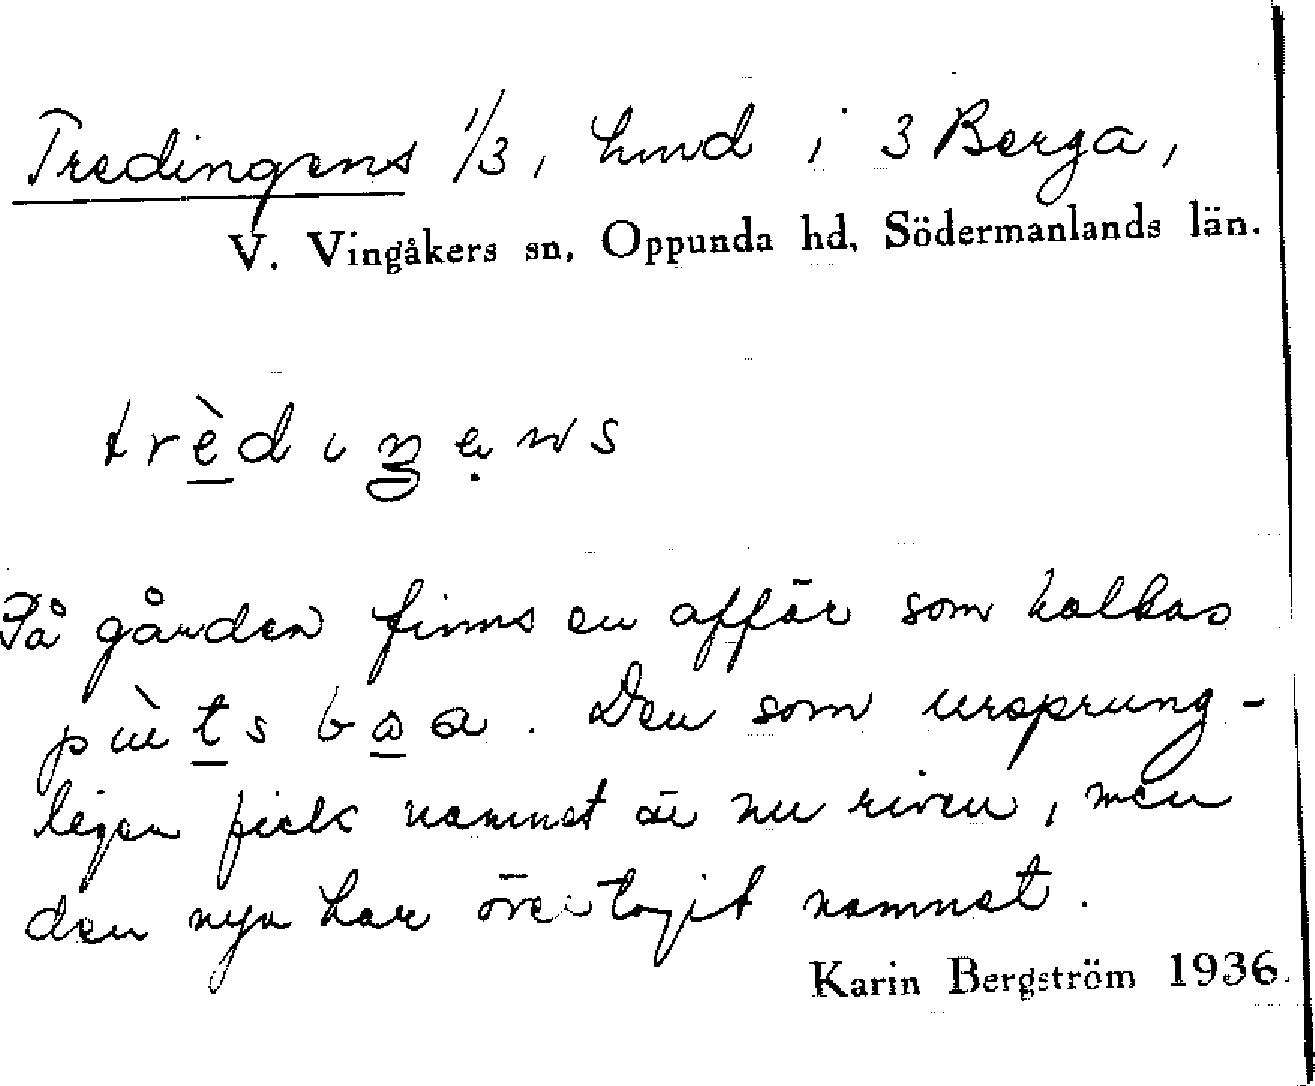 Tredingens 1/3, hmd i 3 Berga,
V. Vingåkers sn, Oppunda hd, Södermanlands län.
trèdıŋens
På gården finns en affär som kallas
Den som ursprung-
ligen fick namnet är nu riven, men
den nya har övertagit namnet.
Karin Bergström 1936.